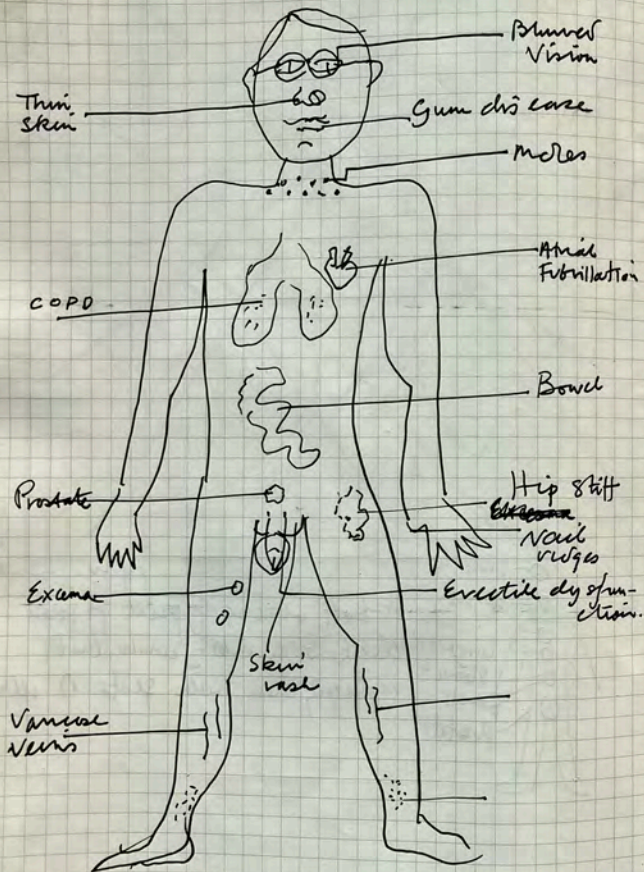 Blurred
Vision
Thin
skin
Gum disease
Moles
Atrial
Fibrillation
COPD
Bowel
Prostate
Hip stiff
Nail
ridges
Exema
Erectile dysfun-
ction.
Skin
rash
Varicose
Veins